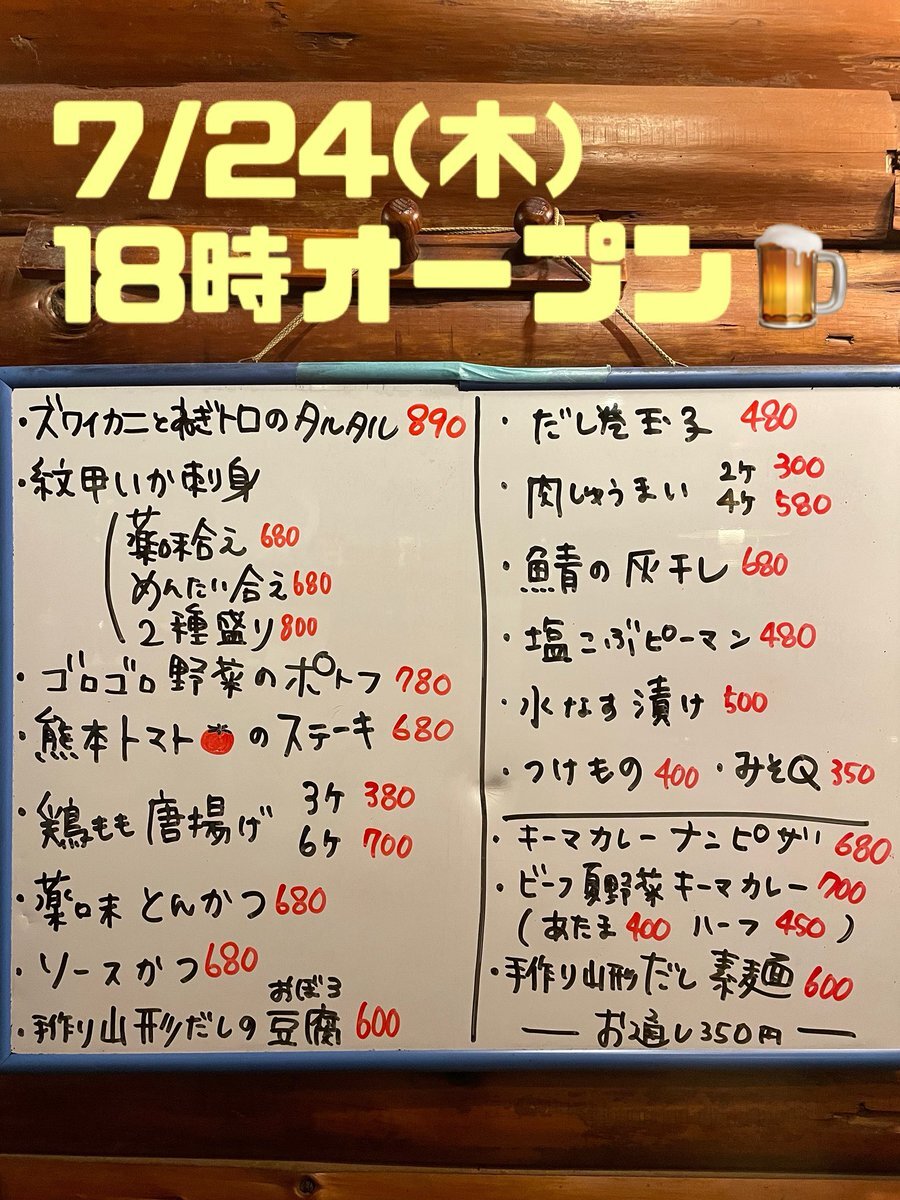 7/24(木)
18時オープン
・ズワイカニとねぎトロのタルタル 890
・紋甲いか刺身
薬味合え 680
めんたい合え 680
2種盛り 800
・ゴロゴロ野菜のポトフ 780
・熊本トマト🍅のステーキ 680
・鶏もも唐揚げ 3ケ 380
6ケ 700
・薬味とんかつ 680
・ソースかつ 680
おぼろ
・手作り山形だしの豆腐 600
・だし巻玉子 480
・肉しゅうまい 2ケ 300
4ケ 580
・鯖の灰干し 680
・塩こぶピーマン 480
・水なす漬け 500
・つけもの 400 ・みそQ 350
・キーマカレーナンピザ 680
・ビーフ夏野菜キーマカレー 700
(あたま 400 ハーフ 450)
・手作り山形だし素麺 600
— お通し350円 —